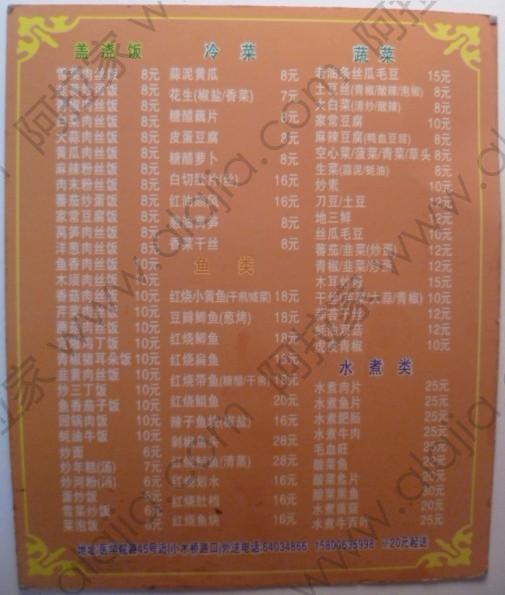 盖浇饭
雪菜肉丝饭 8元
8元
青椒肉丝饭 8元
白菜肉丝饭 8元
大蒜肉丝饭 8元
黄瓜肉丝饭 8元
麻辣粉丝饭 8元
肉末粉丝饭 8元
蕃茄炒蛋饭 8元
家常豆腐饭 8元
莴笋肉丝饭 8元
洋葱肉丝饭 8元
鱼香肉丝饭 10元
木须肉丝饭 10元
香菇肉丝饭 10元
10元
10元
10元
青椒猪耳朵饭 10元
韭黄肉丝饭 10元
炒三丁饭 10元
鱼香茄子饭 10元
回锅肉饭 10元
蚝油牛饭 10元
炒面 6元
炒年糕(汤) 7元
炒河粉(汤) 6元
蛋炒饭 6元
雪菜炒饭 6元
菜泡饭 8元
冷菜
蒜泥黄瓜 8元
花生(椒盐/香菜) 7元
糖醋藕片 8元
皮蛋豆腐 8元
糖醋萝卜 8元
白切肚片(丝) 16元
红油顺风 16元
8元
香菜干丝 8元
鱼类
红烧小黄鱼(干煎/咸菜) 18元
豆瓣鲫鱼(葱烤) 18元
红烧鲫鱼 18元
红烧扁鱼 18元
红烧带鱼(糖醋/干煎) 18元
红烧鲳鱼 20元
辣子鱼块(椒盐) 16元
28元
(清蒸) 28元
红烧划水 16元
红烧肚档 16元
红烧鱼块 16元
蔬菜
老油条丝瓜毛豆 15元
土豆丝(青椒/酸辣/泡椒) 8元
大白菜(清炒/酸辣) 8元
家常豆腐 10元
麻辣豆腐(鸭血豆腐) 8元
空心菜/菠菜/青菜/草头 8元
生菜(蒜泥/蚝油) 8元
炒素 10元
刀豆/土豆 12元
地三鲜 12元
丝瓜毛豆 10元
蕃茄/韭菜(炒蛋) 12元
青椒/韭菜(炒 12元
木耳炒 15元
干丝 /大蒜/青椒) 10元
12元
12元
青椒 10元
水煮类
水煮肉片 25元
水煮鱼片 25元
水煮肥肠 25元
水煮牛肉 25元
毛血旺 25元
酸菜鱼 22元
酸菜 片 20元
酸菜黑鱼 30元
20元
水煮牛百叶 25元
地址:医学院路45号近(小木桥路口)外送电话:64034866 15800636998 20元起送
阿拉加家 www.alajia.com